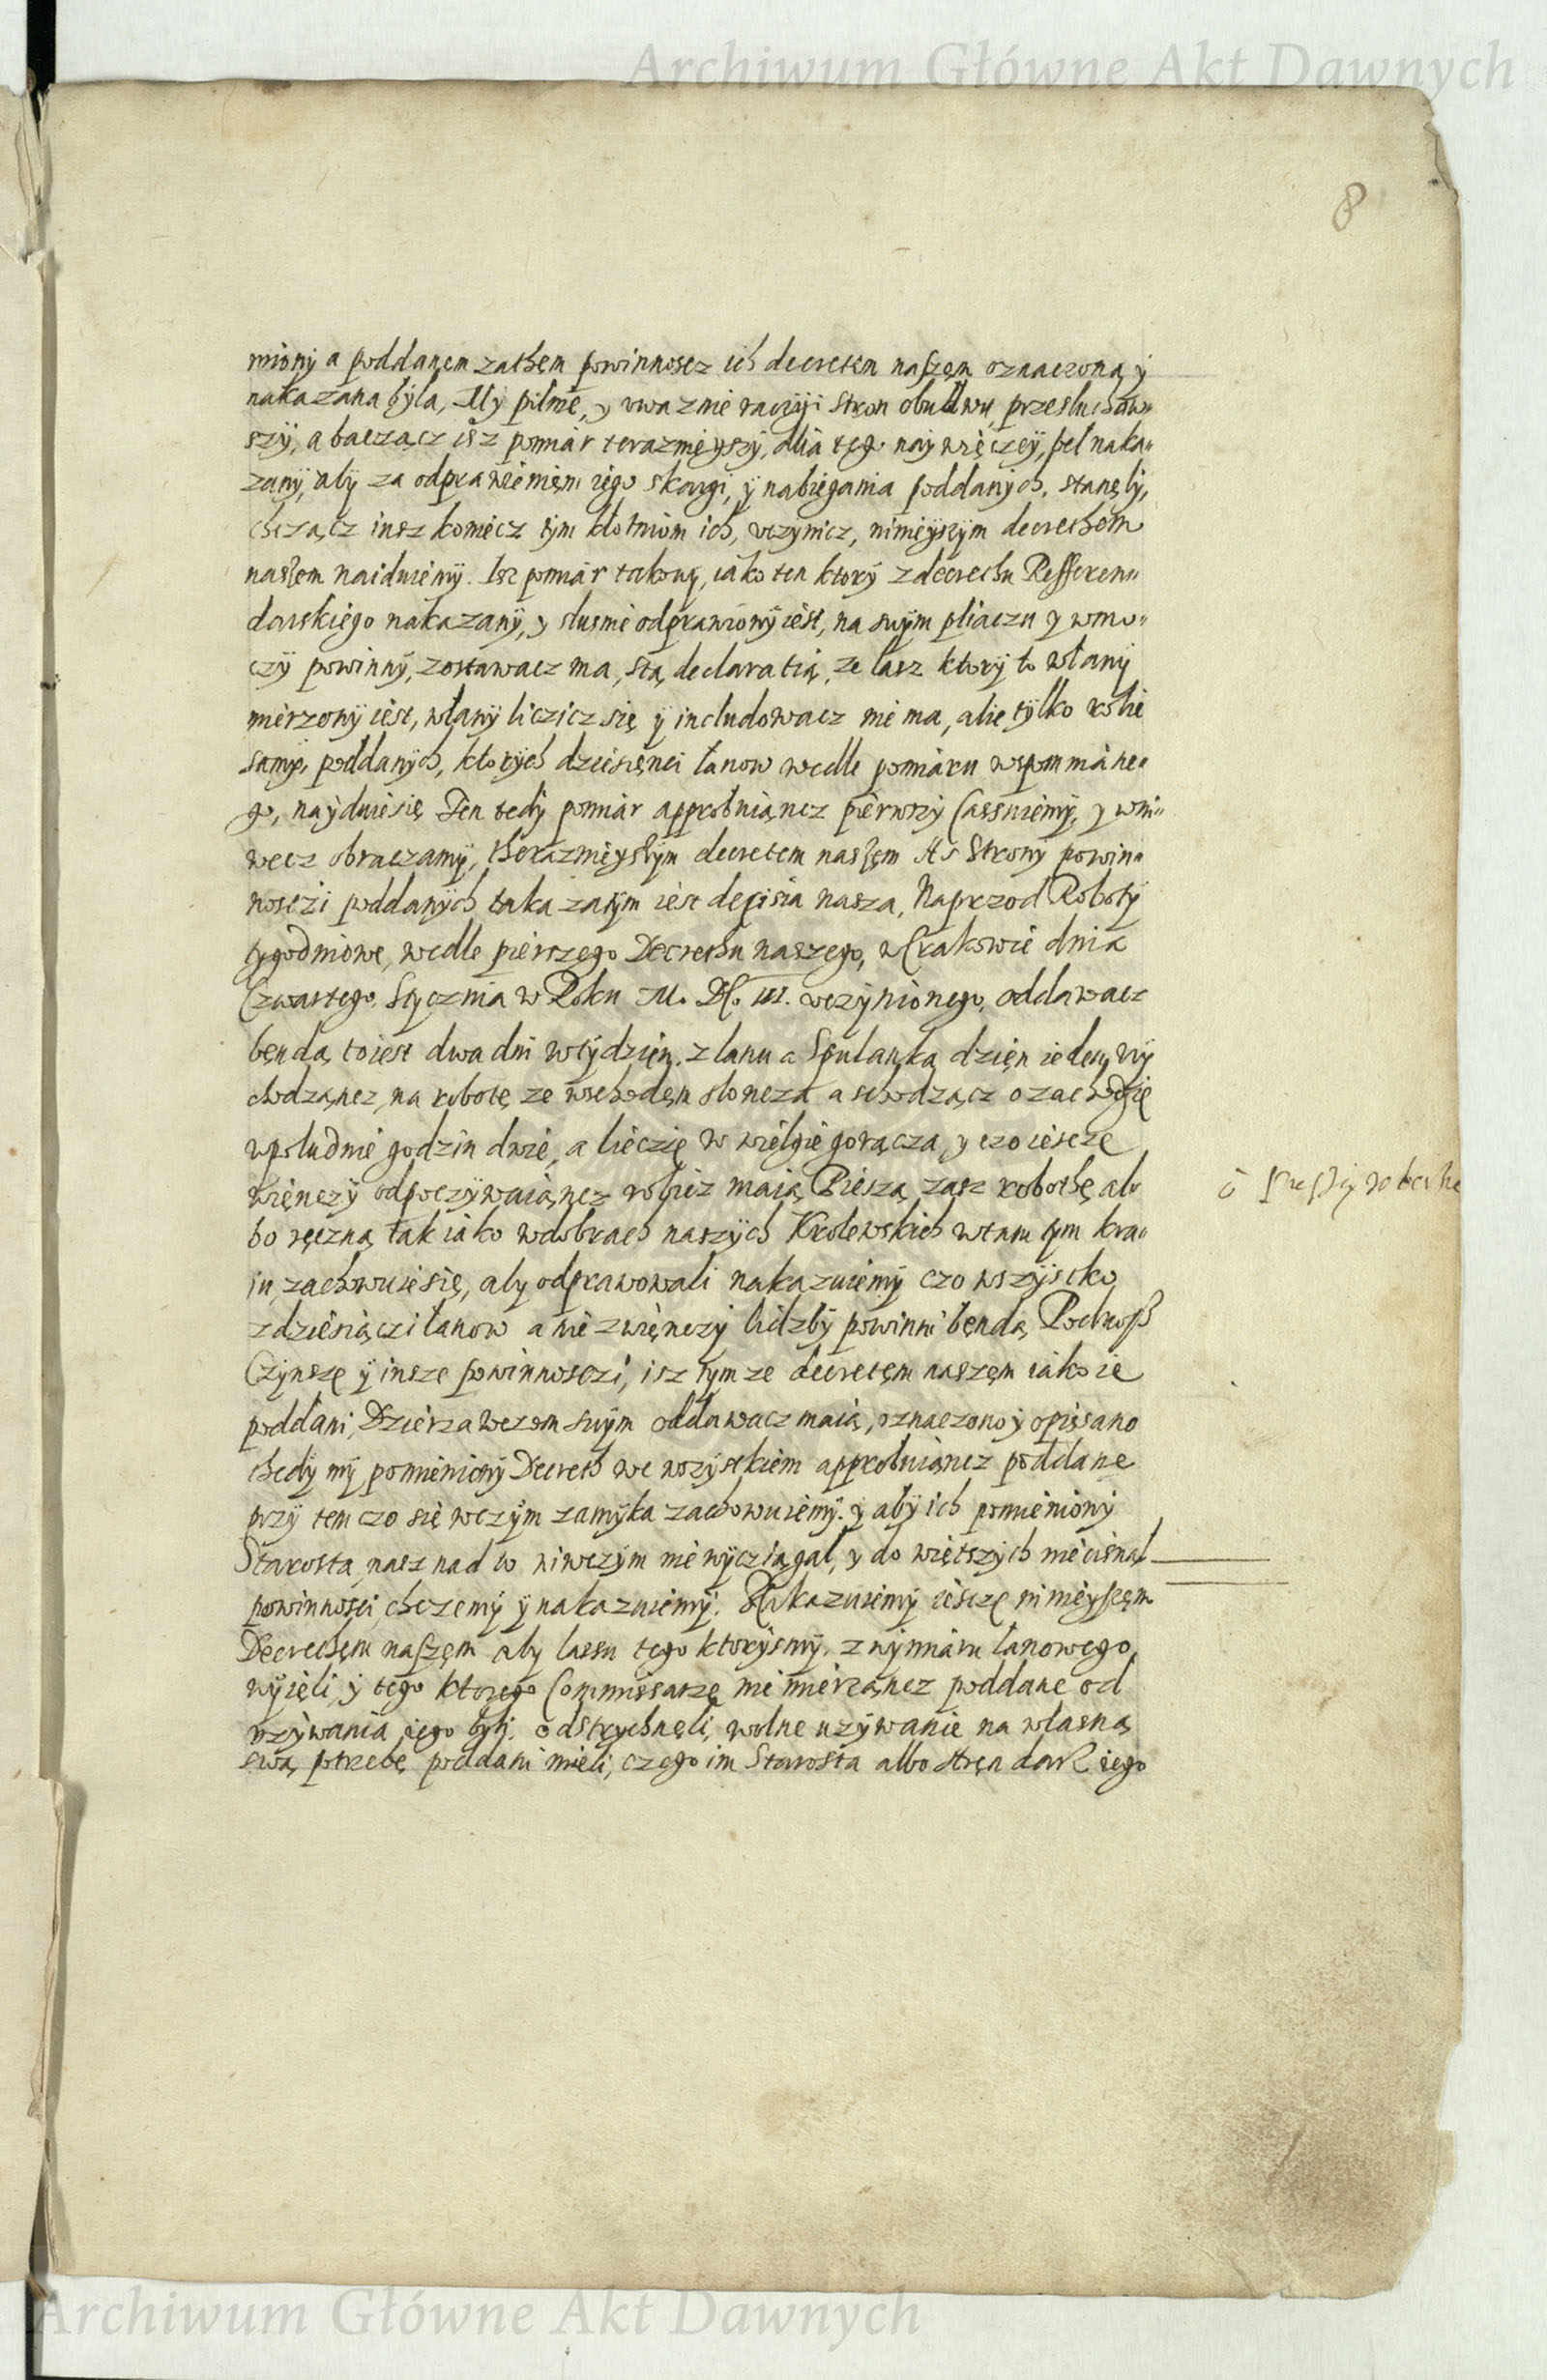 Archiwum Główne Akt Dawnych
8
miony a poddanem zathem powinnoscz ich decretem naszem oznaczona y
nakazana byla, My pilnie, y uwaznie raczyi stron obudwu przesluchaw„
szy, a baczącz isz pomiar teraznieyszy, dlia tego naywięczey, beł naka„
zany, aby za odprawieniem iego skargi, y nabiegania poddanych, stanęly,
chcząc iusz koniecz tym kłotniom ich, uczynicz, ninieyszym decrethem
naszem naiduiemy. Isz pomiar takowy, iako ten ktory z decrethu Refferen„
darskiego nakazany, y slusnie odprawiony iest, na swym pliaczu y w mo„
czy powinny, zostawacz ma, stą declaratią, ze lasz ktory to w łany
mierzony iest, w łany liczicz się y includowacz nie ma, alie tylko rolie
samye poddanych, ktorych dziesięnci łanow wedle pomiaru wspomniane„
go, nayduie się Ten tedy pomiar approbuiąncz pierwszy Cassuiemy, y w ni„
wecz obraczamy, theraznieyszym decretem naszem As Strony powin„
nosczi poddanych taka zatym iest decisia nasza, Naprzod Roboty
tygodniowe, wedle pierszego Decrethu naszego, w Crakowie dnia
Czwartego, Stycznia w Roku M. DC. III. uczynionego, oddawacz
bęndą to iest dwa dni w tydzien, z lanu a Spulanką dzięn ieden, wy
chodząncz, na robotę ze wschodem sloncza a schodzącz o zachodzie
w poludnie godzin dwie, a lieczie w wielgie gorącza, y czo iescze
więnczy odpoczywaiąncz robicz maią Pieszą zasz robothę al„
bo ręczną tak iako w dobrach naszych Krolewskich w tam tym kra„
iu, zachowuie się, aby odprawowali nakazuiemy czo wszystko
z dziesiączi łanow a nie z więnczy liczby powinni bęndą
Czynsze y insze powinnosczi, isz tymze decretem naszem iako ie
poddani, Dzierzawczom swym oddawacz maią, oznaczono y opissano
thedy my pomieniony Decreth we wszystkiem approbuiąncz poddane
przy tem czo się w czym zamyka zachowuiemy. y aby ich pomieniony
Starosta nasz nad to w niwczym nie wycziągał, y do więtszych nie cisnął
powinnosci chczemy y nakazuiemy. Nakazuiemy iescze ninieyszem
Decrethem naszem aby lassu tego ktorysmy, z wymiaru łanowego
wyięli, y tego ktorego Commissarze nie mierząncz poddane od
uzywania iego byli odstrychnęli, wolne uzywanie na własną
swą potrzebę poddani mieli, czego im Starosta albo Aręndarz iego
Archiwum Główne Akt Dawnych